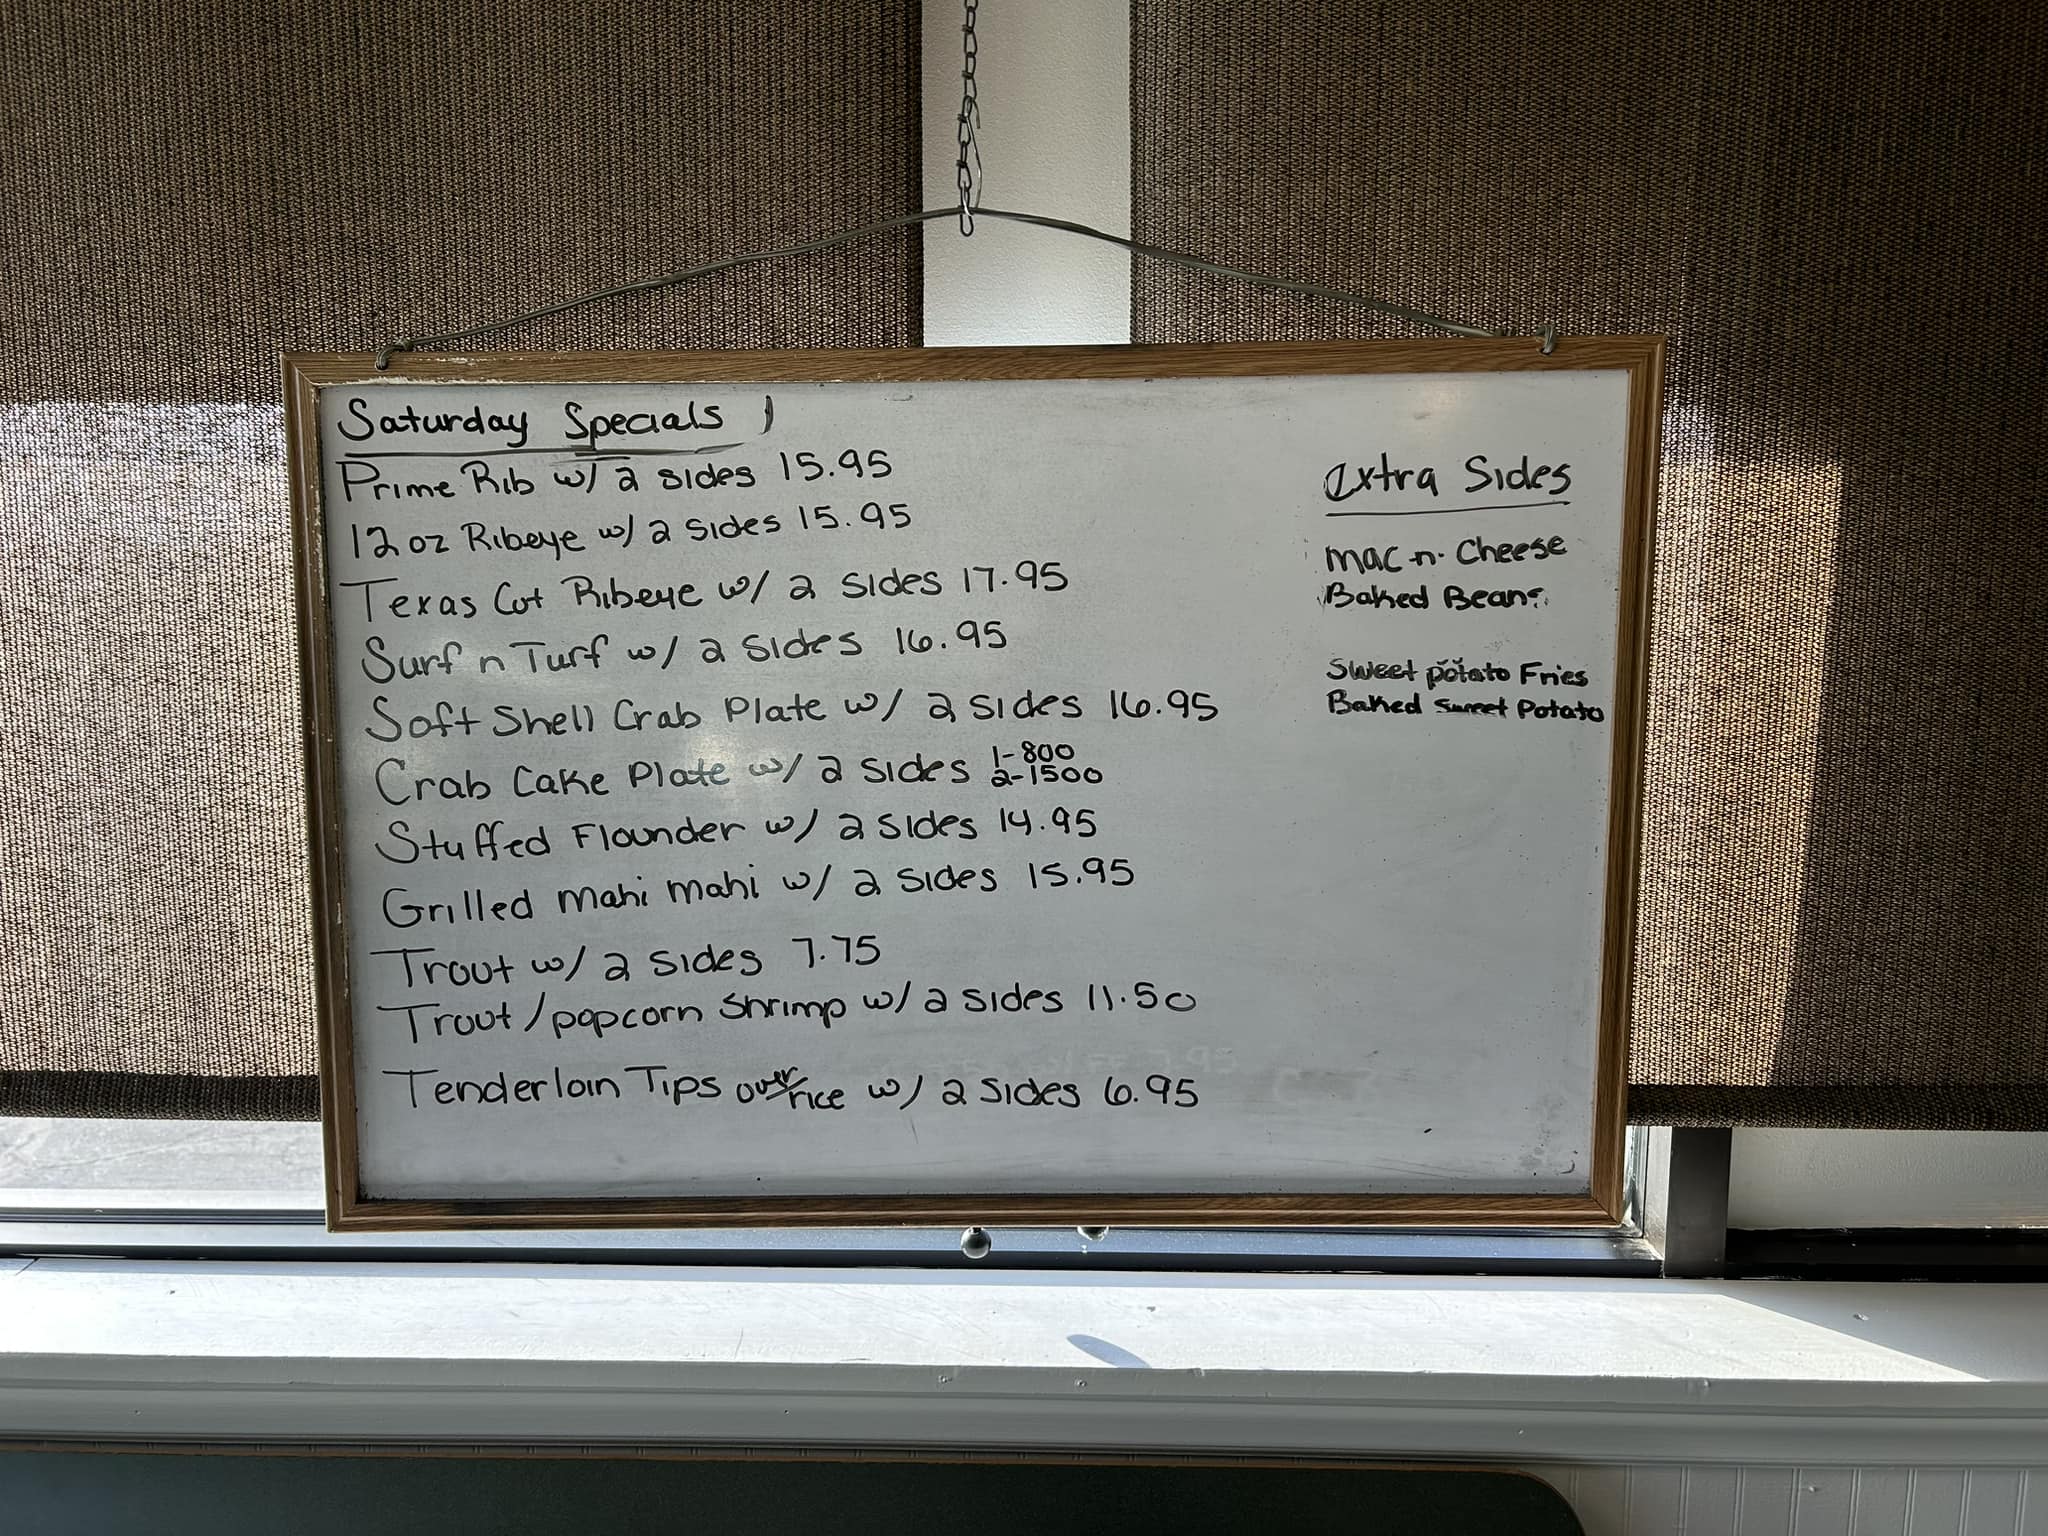 Saturday Specials
Prime Rib w/ 2 sides 15.95
12 oz Ribeye w/ 2 sides 15.95
Texas Cut Ribeye w/ 2 sides 17.95
Surf n Turf w/ 2 sides 16.95
Soft Shell Crab Plate w/ 2 sides 16.95
Crab Cake Plate w/ 2 sides 1-800
2-1500
Stuffed Flounder w/ 2 sides 14.95
Grilled mahi mahi w/ 2 sides 15.95
Trout w/ 2 sides 7.75
Trout/popcorn Shrimp w/ 2 sides 11.50
Tenderloin Tips over/rice w/ 2 sides 6.95
extra Sides
mac n. Cheese
Baked Beans
Sweet potato Fries
Baked sweet Potato